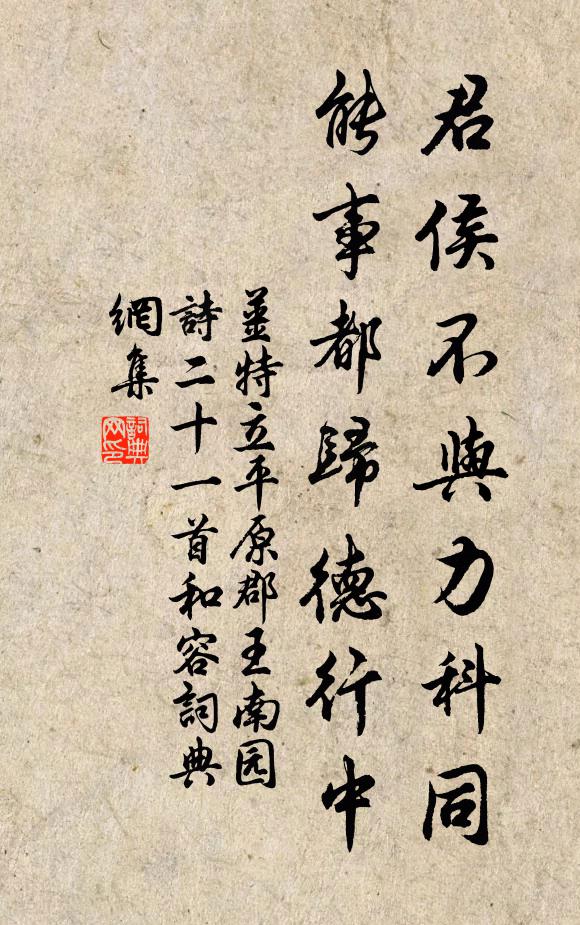 君侯不與力科同
能事都歸德行中
薑特立平原郡王南园
詩二十一首和容詞典
網集
詞典網印